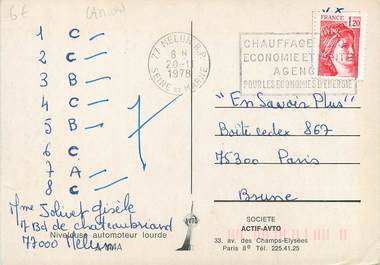 6F
1 C
2 C
3 B
4 C
5 B
6 C
7 A
8 C
77 MELUN R.P.
8H
20-11
1978
SEINE ET MARNE
CHAUFFAGE
ECONOMIE ET
AGENCE
POUR LES ECONOMIES D'ENERGIE
FRANCE
1,20
"En Savoir Plus"
Boîte cedex 867
75300 Paris
Brune
Mme Jolivet Gisèle
7 Bd de chateaubriand
77000 Melun
Niveleuse automoteur lourde
A 144A
AVTO
SOCIETE
ACTIF-AVTO
33, av. des Champs-Elysées
Paris 8e Tél. 225.41.25